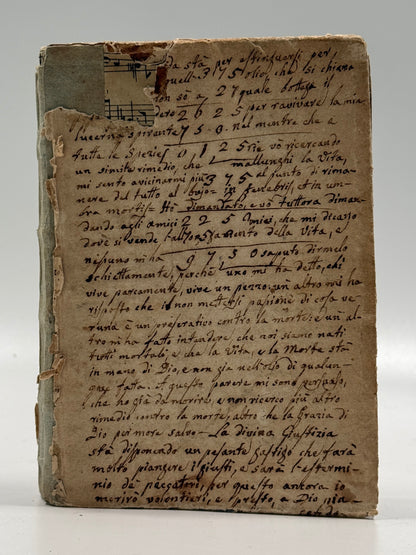 da stà per estinguersi per
quell 375 olio, che si chiama
non sò a 27 quale bottega il
dero 2625 per ravivare la mia
lucerna spirante 750. nel mentre che a
tutte le Speries 0125 rie vò ricercando
un simile rimedio, che mallunghi la Vita,
mi sento avicinarmi più 375 al punto di rima-
nere del tutto al bujo = in tenebris, et in um
bra mortis = Hò dimandato, e vò tuttora diman-
dando agli amici 225 miei, che mi dicano
dove si vende l'all 75 amento della Vita, e
nessuno mi ha 9750 saputo dirmelo
schiettamente, perchè uno mi ha detto, chi
vive parcamente, vive un pezzo; un altro mi ha
risposto che il non mettersi passione di cosa ve
runa è un preservativo contro la morte: e un al
tro mi ha fatto intendere che noi siamo nati
tutti mortali, e che la Vita, e la Morte stà
in mano di Dio, e non già nell'
fato. A questo parere mi sono persuaso,
che ho già da morire, e non ricerco più altro
rimedio contro la morte, altro che la Grazia di
Dio per more salvo - La divina Giustizia
stà disponendo un pesante gastigo che farà
molto piangere i giusti, e sarà l'estermi-
nio de peccatori, per questo ancora io
morirò volentieri, e presto, a Dio pia-